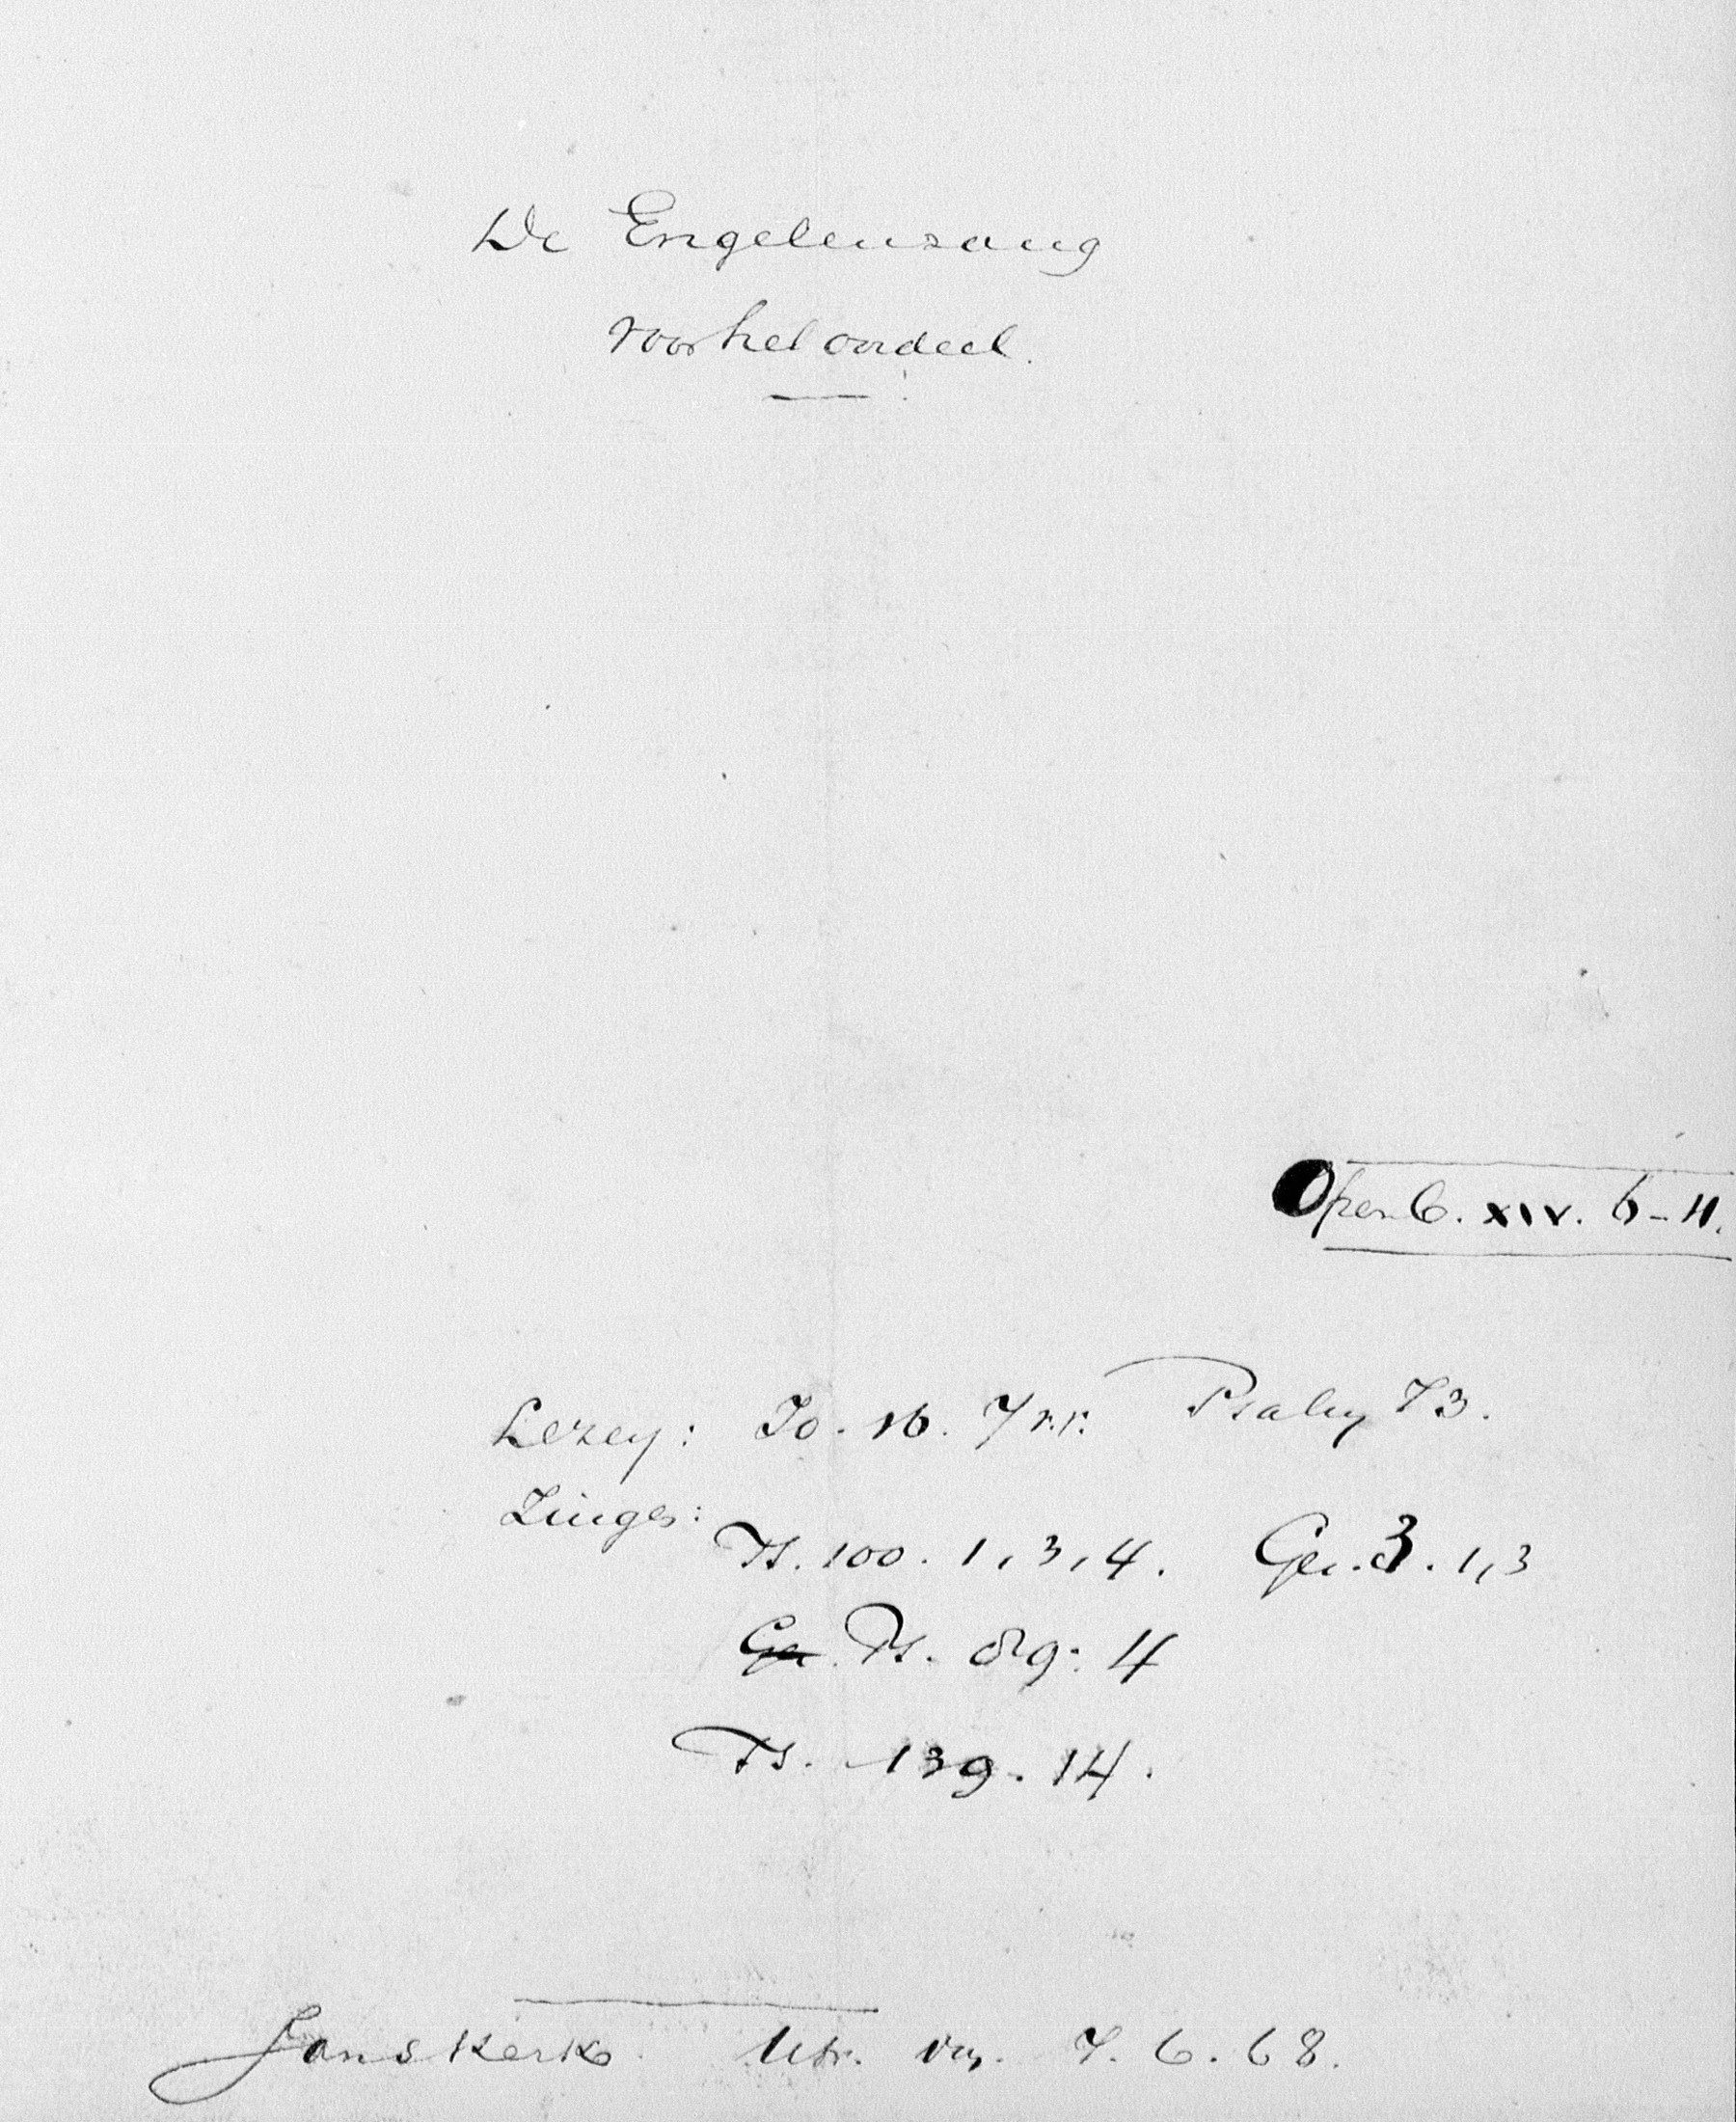 De Engelenzang
voor het oordeel.
Openb. XIV. 6-11.
Lezen: Jo. 16. 7 v.v. Psalm 73.
Zingen:
Ps. 100. 1, 3, 4. Gez. 3. 1, 3
Gez. Ps. 89: 4
Ps. 139. 14.
Janskerk. Utr. 7. 6. 68.